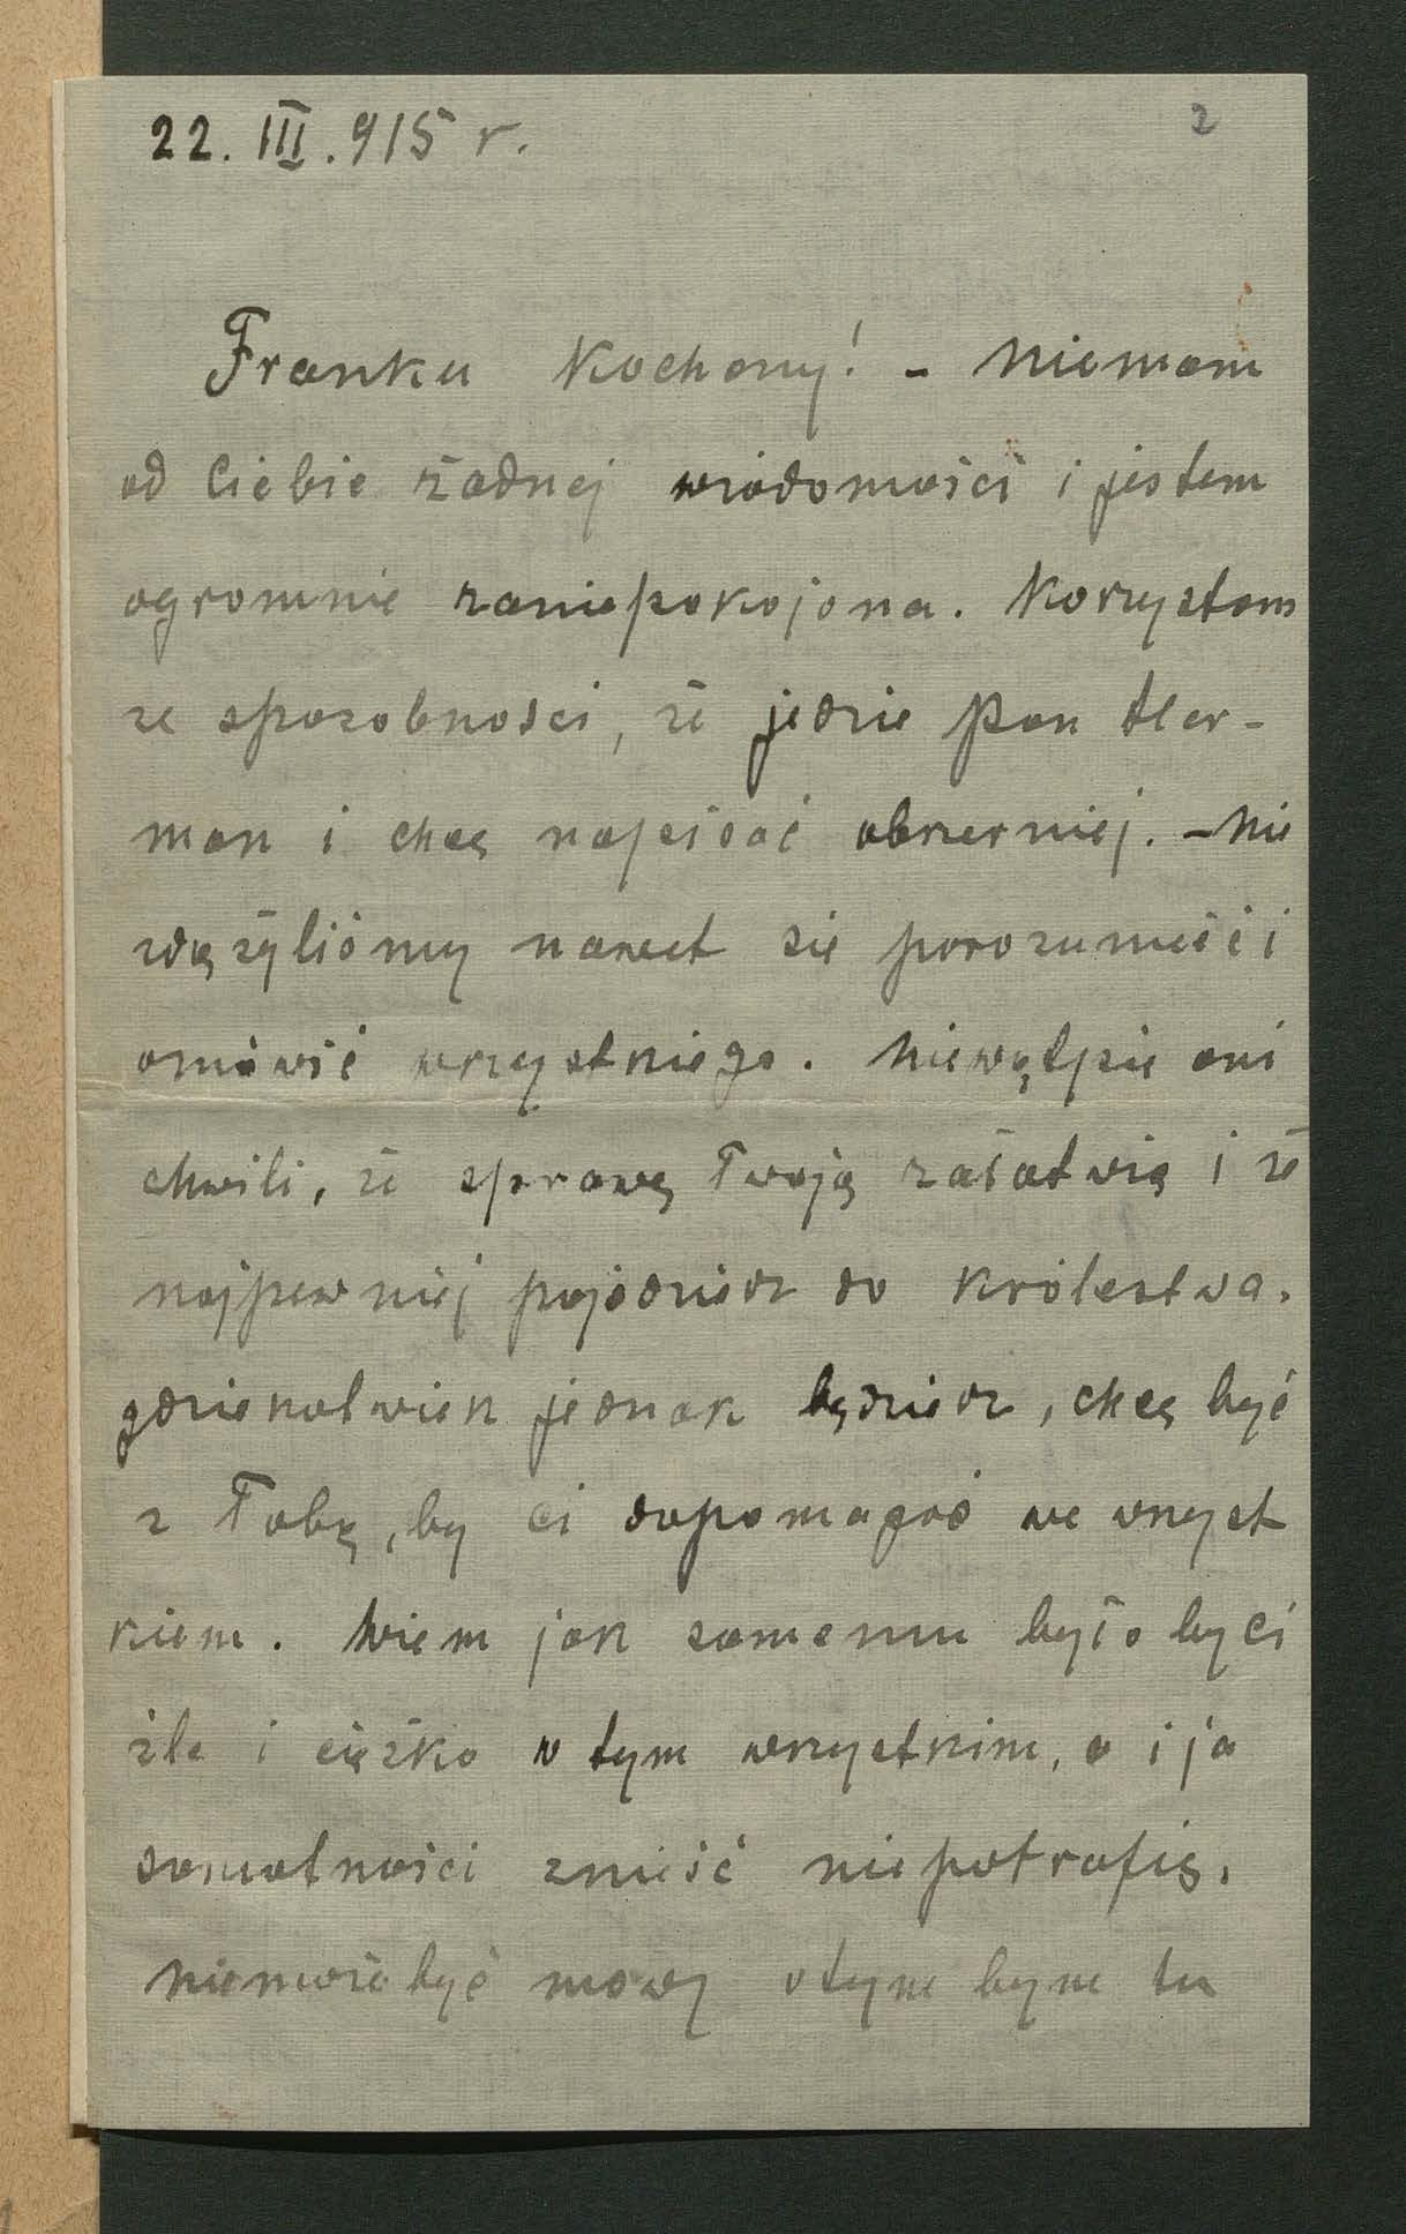 22. III. 915 r.
2
Franku Kochany! – Niemam
od Ciebie żadnej wiadomości i jestem
ogromnie zaniepokojona. Korzystam
ze sposobności, że jedzie Pan Her-
man i chcę napisać obszerniej. – Nie
zdążyliśmy nawet sie porozumieć i
omówić wszystkiego. Niewątpie ani
chwili, że sprawę Twoją załatwią i że
najpewniej pojedziesz do Królestwa.
gdziekolwiek jednak będziesz, chcę być
z Tobą, by ci dopomagać we wszyst
kiem. Wiem jak samemu byłoby ci
źle i ciężko w tym wszystkim, a i ja
samotności znieść niepotrafię.
Niemoże być mowy o tym bym tu